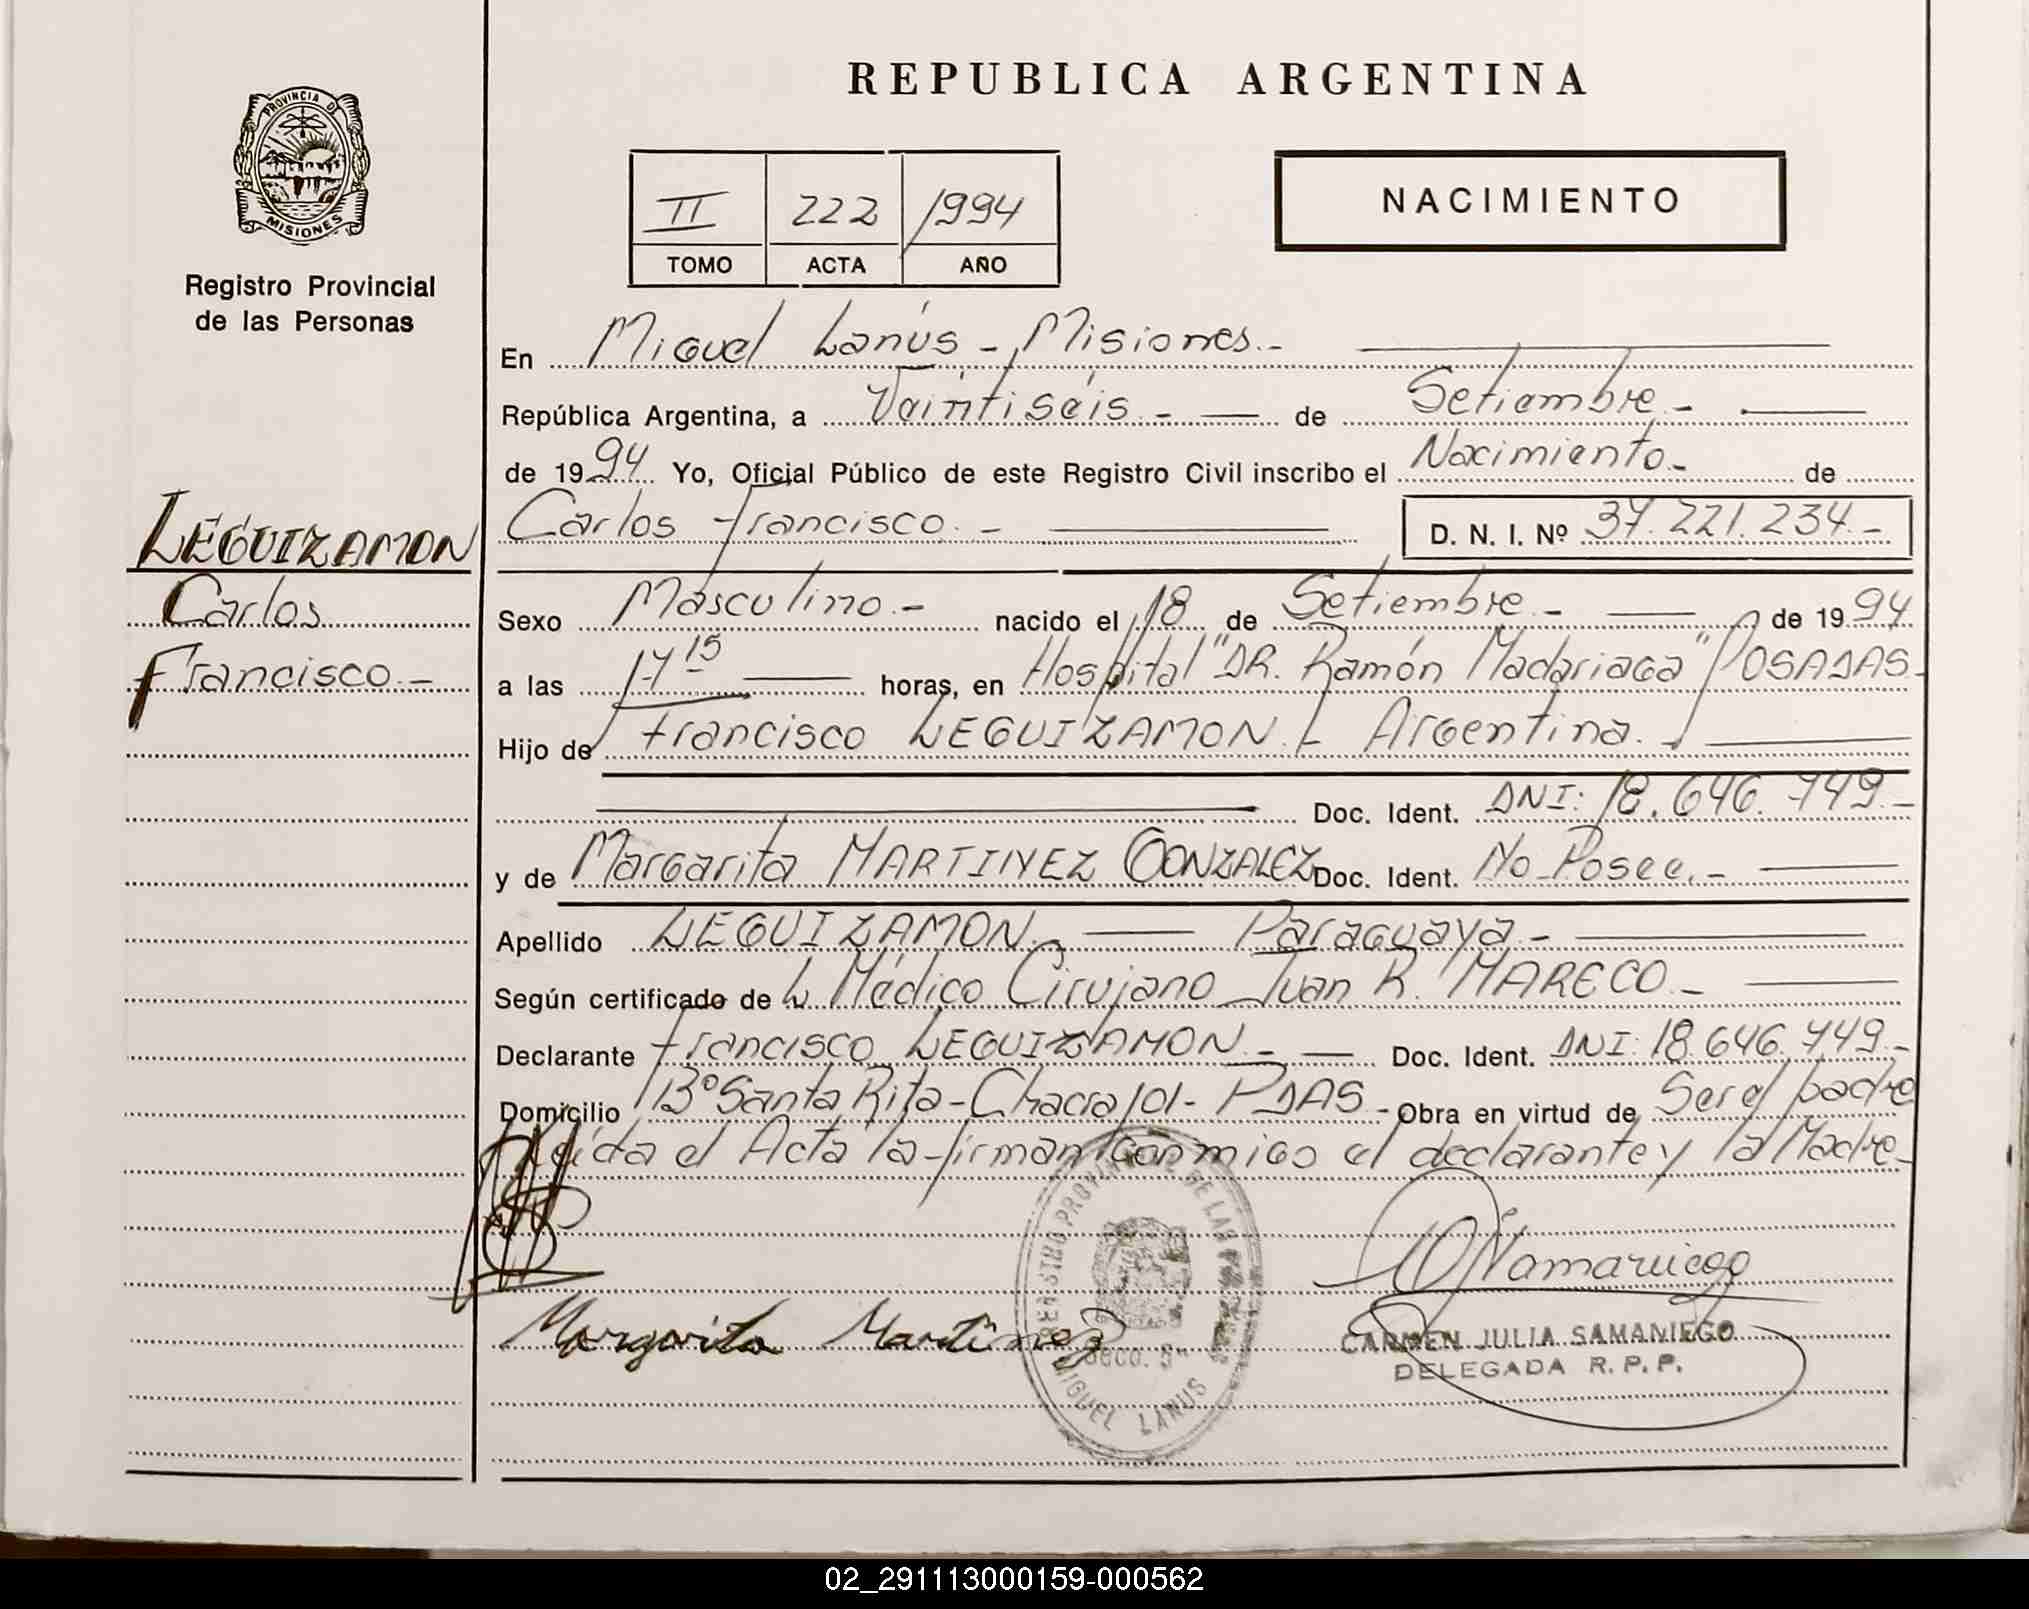 REPUBLICA ARGENTINA
PROVINCIA DE
MISIONES
Registro Provincial
de las Personas
II 222 1994
TOMO ACTA AÑO
NACIMIENTO
En Miguel Lanús - Misiones.-
República Argentina, a Veintiséis.- de Setiembre.-
de 1994. Yo, Oficial Público de este Registro Civil inscribo el Nacimiento.- de
LEGUIZAMON
Carlos
Francisco.-
Carlos Francisco.- D. N. I. Nº 37.221.234.-
Sexo Masculino.- nacido el 18 de Setiembre.- de 1994
a las 17 15 horas, en Hospital "DR. Ramón Madariaga" POSADAS-
Hijo de Francisco LEGUIZAMON.- Argentina.-
Doc. Ident. DNI: 18.646.749.-
y de Margarita MARTINEZ GONZALEZ Doc. Ident. No Posee.-
Apellido LEGUIZAMON.- Paraguaya.-
Según certificado de L Médico Cirujano Juan R. MARECO.-
Declarante Francisco LEGUIZAMON.- Doc. Ident. DNI: 18.646.749.-
Domicilio Bº Santa Rita-Chacra 101- PDAS.- Obra en virtud de Ser el padre
Leída el Acta la firman conmigo el declarante y la Madre-
Margarita Martinez
REGISTRO PROVINCIAL DE LAS PERSONAS
MIGUEL LANUS
CARMEN JULIA SAMANIEGO
DELEGADA R. P. P.
02_291113000159-000562